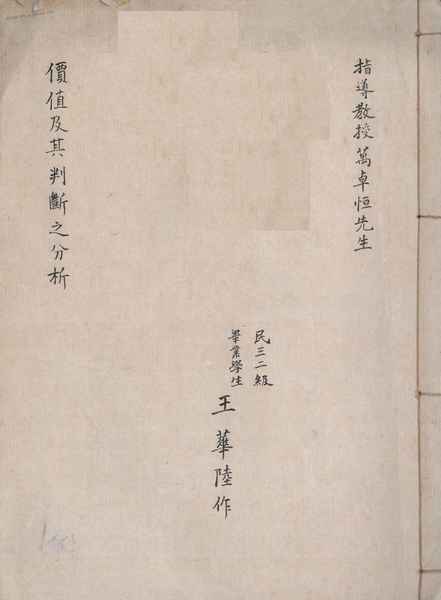 指導教授萬卓恒先生
民三二級
畢業學生
王華陸作
價值及其判斷之分析